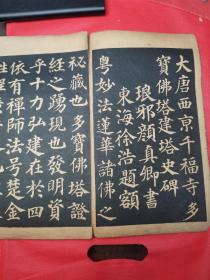 大唐西京千福寺多
寶佛塔建塔史碑
琅邪顏真卿書
東海徐浩題額
粵妙法蓮華諸佛之
祕藏也多寶佛塔證
經之踴現也發明資
乎十力弘建在於四
依有禪師法號楚金
姓程